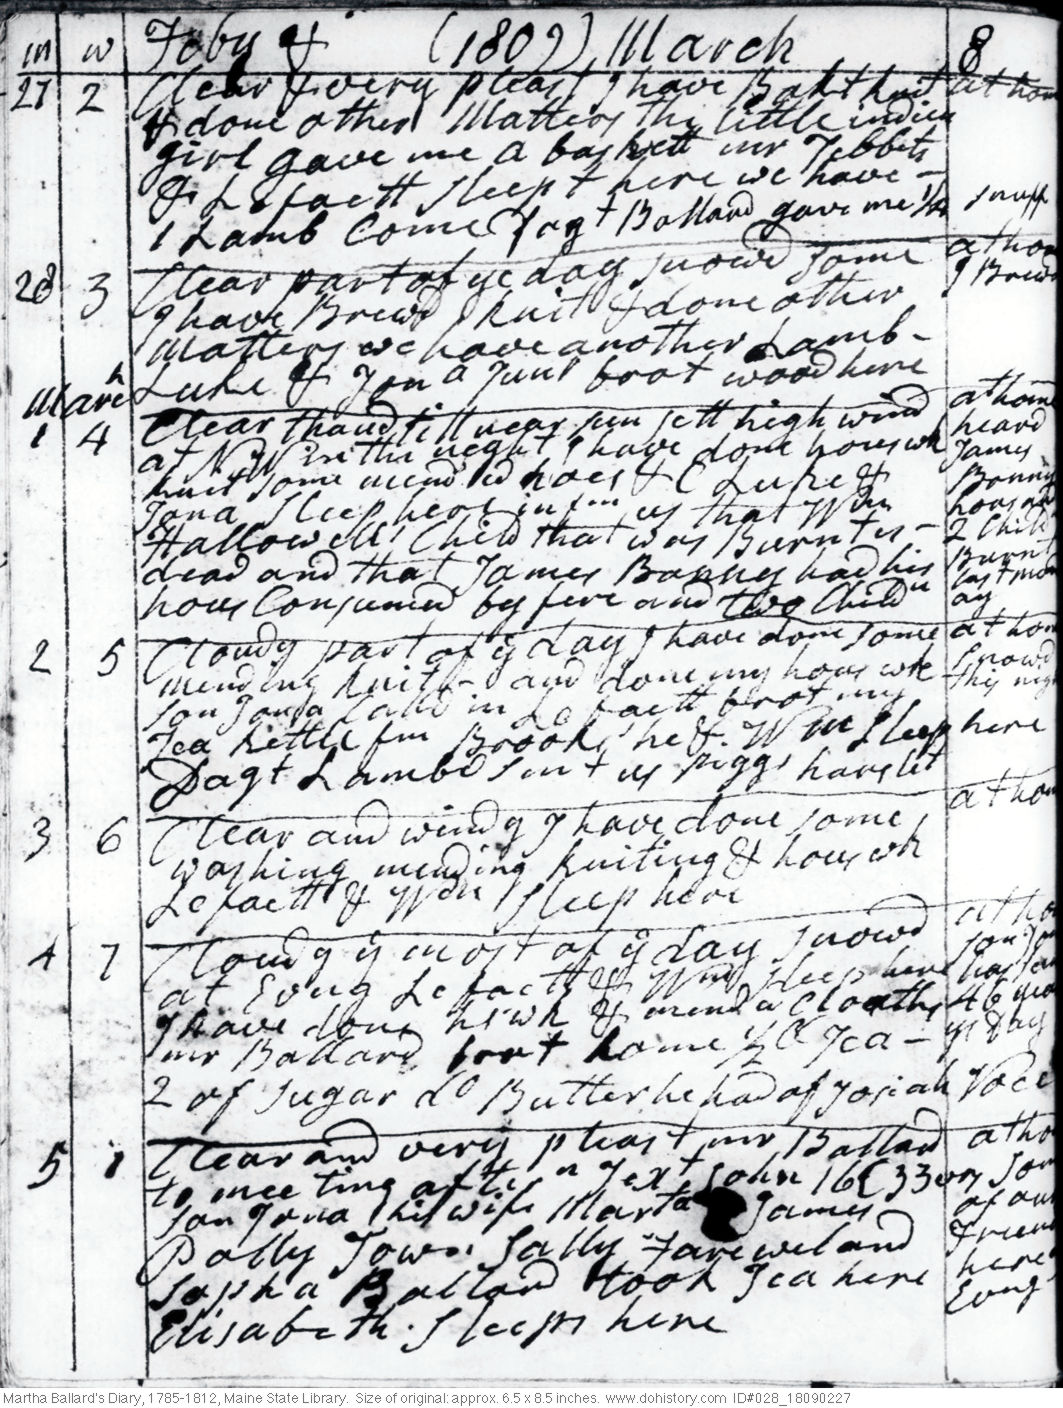 m w Feby & (1809) March 8
27 2 Clear & very pleast I have Bakt knit at hom
& done other Matters the little indien
girl gave me a baskett mr Tebbets
& Lafaett sleept here we have -
1 Lamb Come Dagt Ballard gave me 1/4 snuff
28 3 Clear part of ye day snowd some at hom
I have Brewd knit & done other I Brewd
Matters we have another Lamb -
Luke & Jona Junr brot wood here
March
1 4 Clear thawd till near sun sett high wind at hom
at NW in the night I have done hous wk heard
knit some mendid hoes &C Luke & James
Jona sleep here inform us that Wm Bonny
Hallowells Child that was Burnt is - hous and
dead and that James Bonny had his 2 Child
hous Consumed by fire and two Childn Burnt
last mon
ay
2 5 Cloudy part of ye day I have done some at hom
mending knit - and done my hous wk snowd
son Jona Calld in Lafaett brot my this nig
Tea kettle fm Brooks he & Wm sleep here
Dagt Lambd sent us Piggs harslet
3 6 Clear and windy I have done some at hom
washing mending kniting & hous wk
Lefaett & Wm sleep here
4 7 Cloudy ye most of ye day snowd at ho
at Evng Lefaett & Wm sleep here son Jon
I have done hswk & mendid Cloaths has
mr Ballard brot home ½ lb Tea - 46 yea
2 of sugar do Butter he had of Josiah Voce ys Day
5 1 Clear and very pleast mr Ballard at ho
to meeting afttn Text John 16 C 33 vers
son Jona his wife Marta James of our
Polly Town Sally Farewel and Frien
Sopha Ballard took Tea here here
Elisabeth sleeps here Evng
Martha Ballard's Diary, 1785-1812, Maine State Library. Size of original: approx. 6.5 x 8.5 inches. www.dohistory.com ID#028_18090227